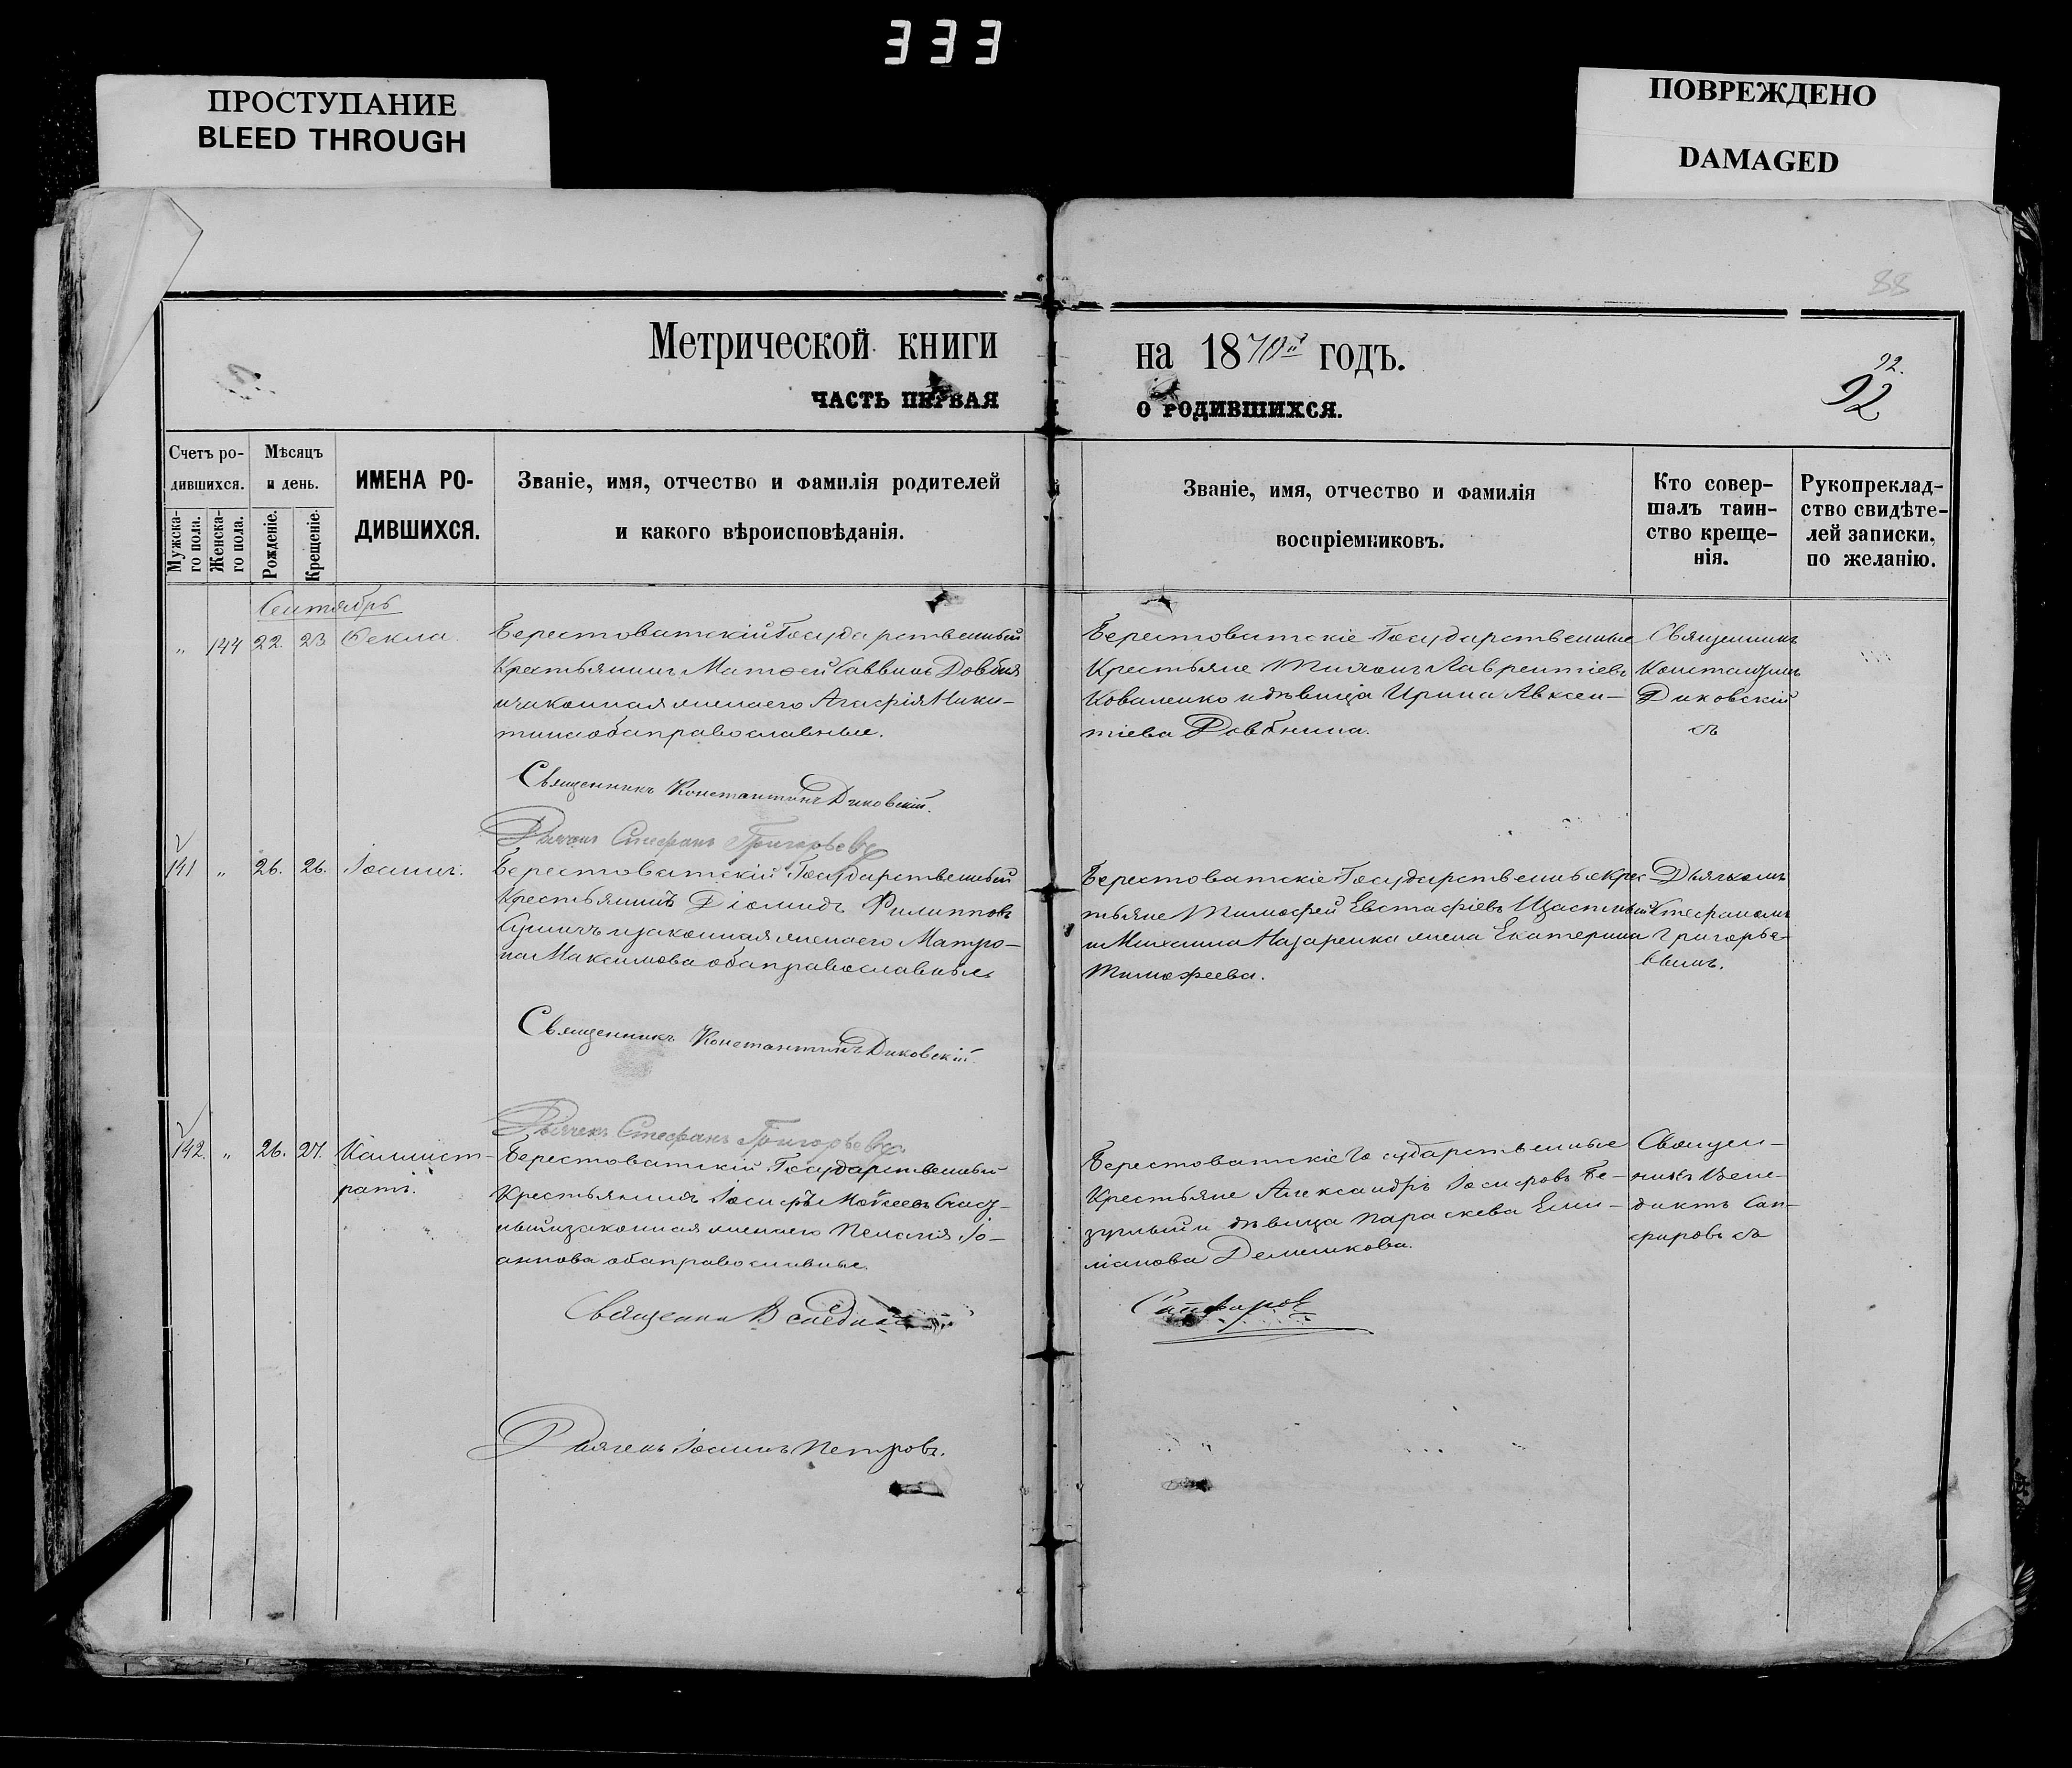 333
ПРОСТУПАНИЕ
BLEED THROUGH
ПОВРЕЖДЕНО
DAMAGED
88
Метрической книги на 1870й годъ.
ЧАСТЬ ПЕРВАЯ О РОДИВШИХСЯ.
92.
92
Счетъ ро-
дившихся.
Мужска-
го пола.
Женска-
го пола.
Мѣсяцъ
и день.
Рожденіе.
Крещеніе.
ИМЕНА РО-
ДИВШИХСЯ.
Званіе, имя, отчество и фамилія родителей
и какого вѣроисповѣданія.
Званіе, имя, отчество и фамилія
воспріемниковъ.
Кто совер-
шалъ таин-
ство креще-
нія.
Рукопреклад-
ство свидѣте-
лей записки,
по желанію.
Сентябрь
„ 144 22. 23 Ѳекла.
Берестоватскій Государственный
Крестьянинъ Матѳей Саввинъ Довбня
и законная жена его Агафія Ники-
тина оба православные.
Берестоватскіе Государственные
Крестьяне Тихонъ Лаврентіевъ
Коваленко и дѣвица Ирина Авксен-
тіева Довбнина.
Священникъ
Константинъ
Диковскій
Священникъ Константинъ Диковскій.
Дьячекъ Стефанъ Григорьевъ
141 „ 26. 26. Іоаннъ.
Берестоватскій Государственный
Крестьянинъ Діомидъ Филипповъ
и законная жена его Матро-
на Максимова оба православные
Берестоватскіе Государственные Крес
тьяне Тимофей Евстафіевъ Щастный
и Михаила Назаренка жена Екатерина
Тимофеева.
Дьячкомъ
Стефаномъ
Григорье-
вымъ.
Священникъ Константинъ Диковскій
Дьячекъ Стефанъ Григорьевъ
142. „ 26. 27. Каллист-
ратъ.
Берестоватскій Государственный
Крестьянинъ Іосифъ Моѵсеевъ
законная жена его Пелагія Іо-
аннова оба православные.
Берестоватскіе Государственные
Крестьяне Александръ Іосифовъ Бе-
зуглый и дѣвица Параскева Еми-
ліанова
Священ-
никъ Вене-
диктъ Сап-
фировъ
Священни Венедикт Сапфиров
Дьячекъ Іоаннъ Петровъ.